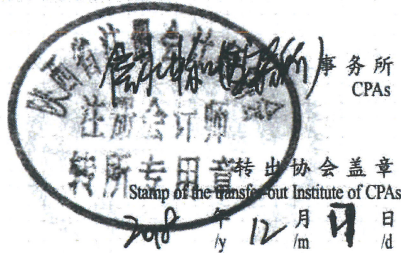 陕西省注册会计师协会
事务所
CPAs
注册会计师
转所专用章
转出协会盖章
Stamp of the transfer-out Institute of CPAs
2018 年 12 月 日
/y /m /d